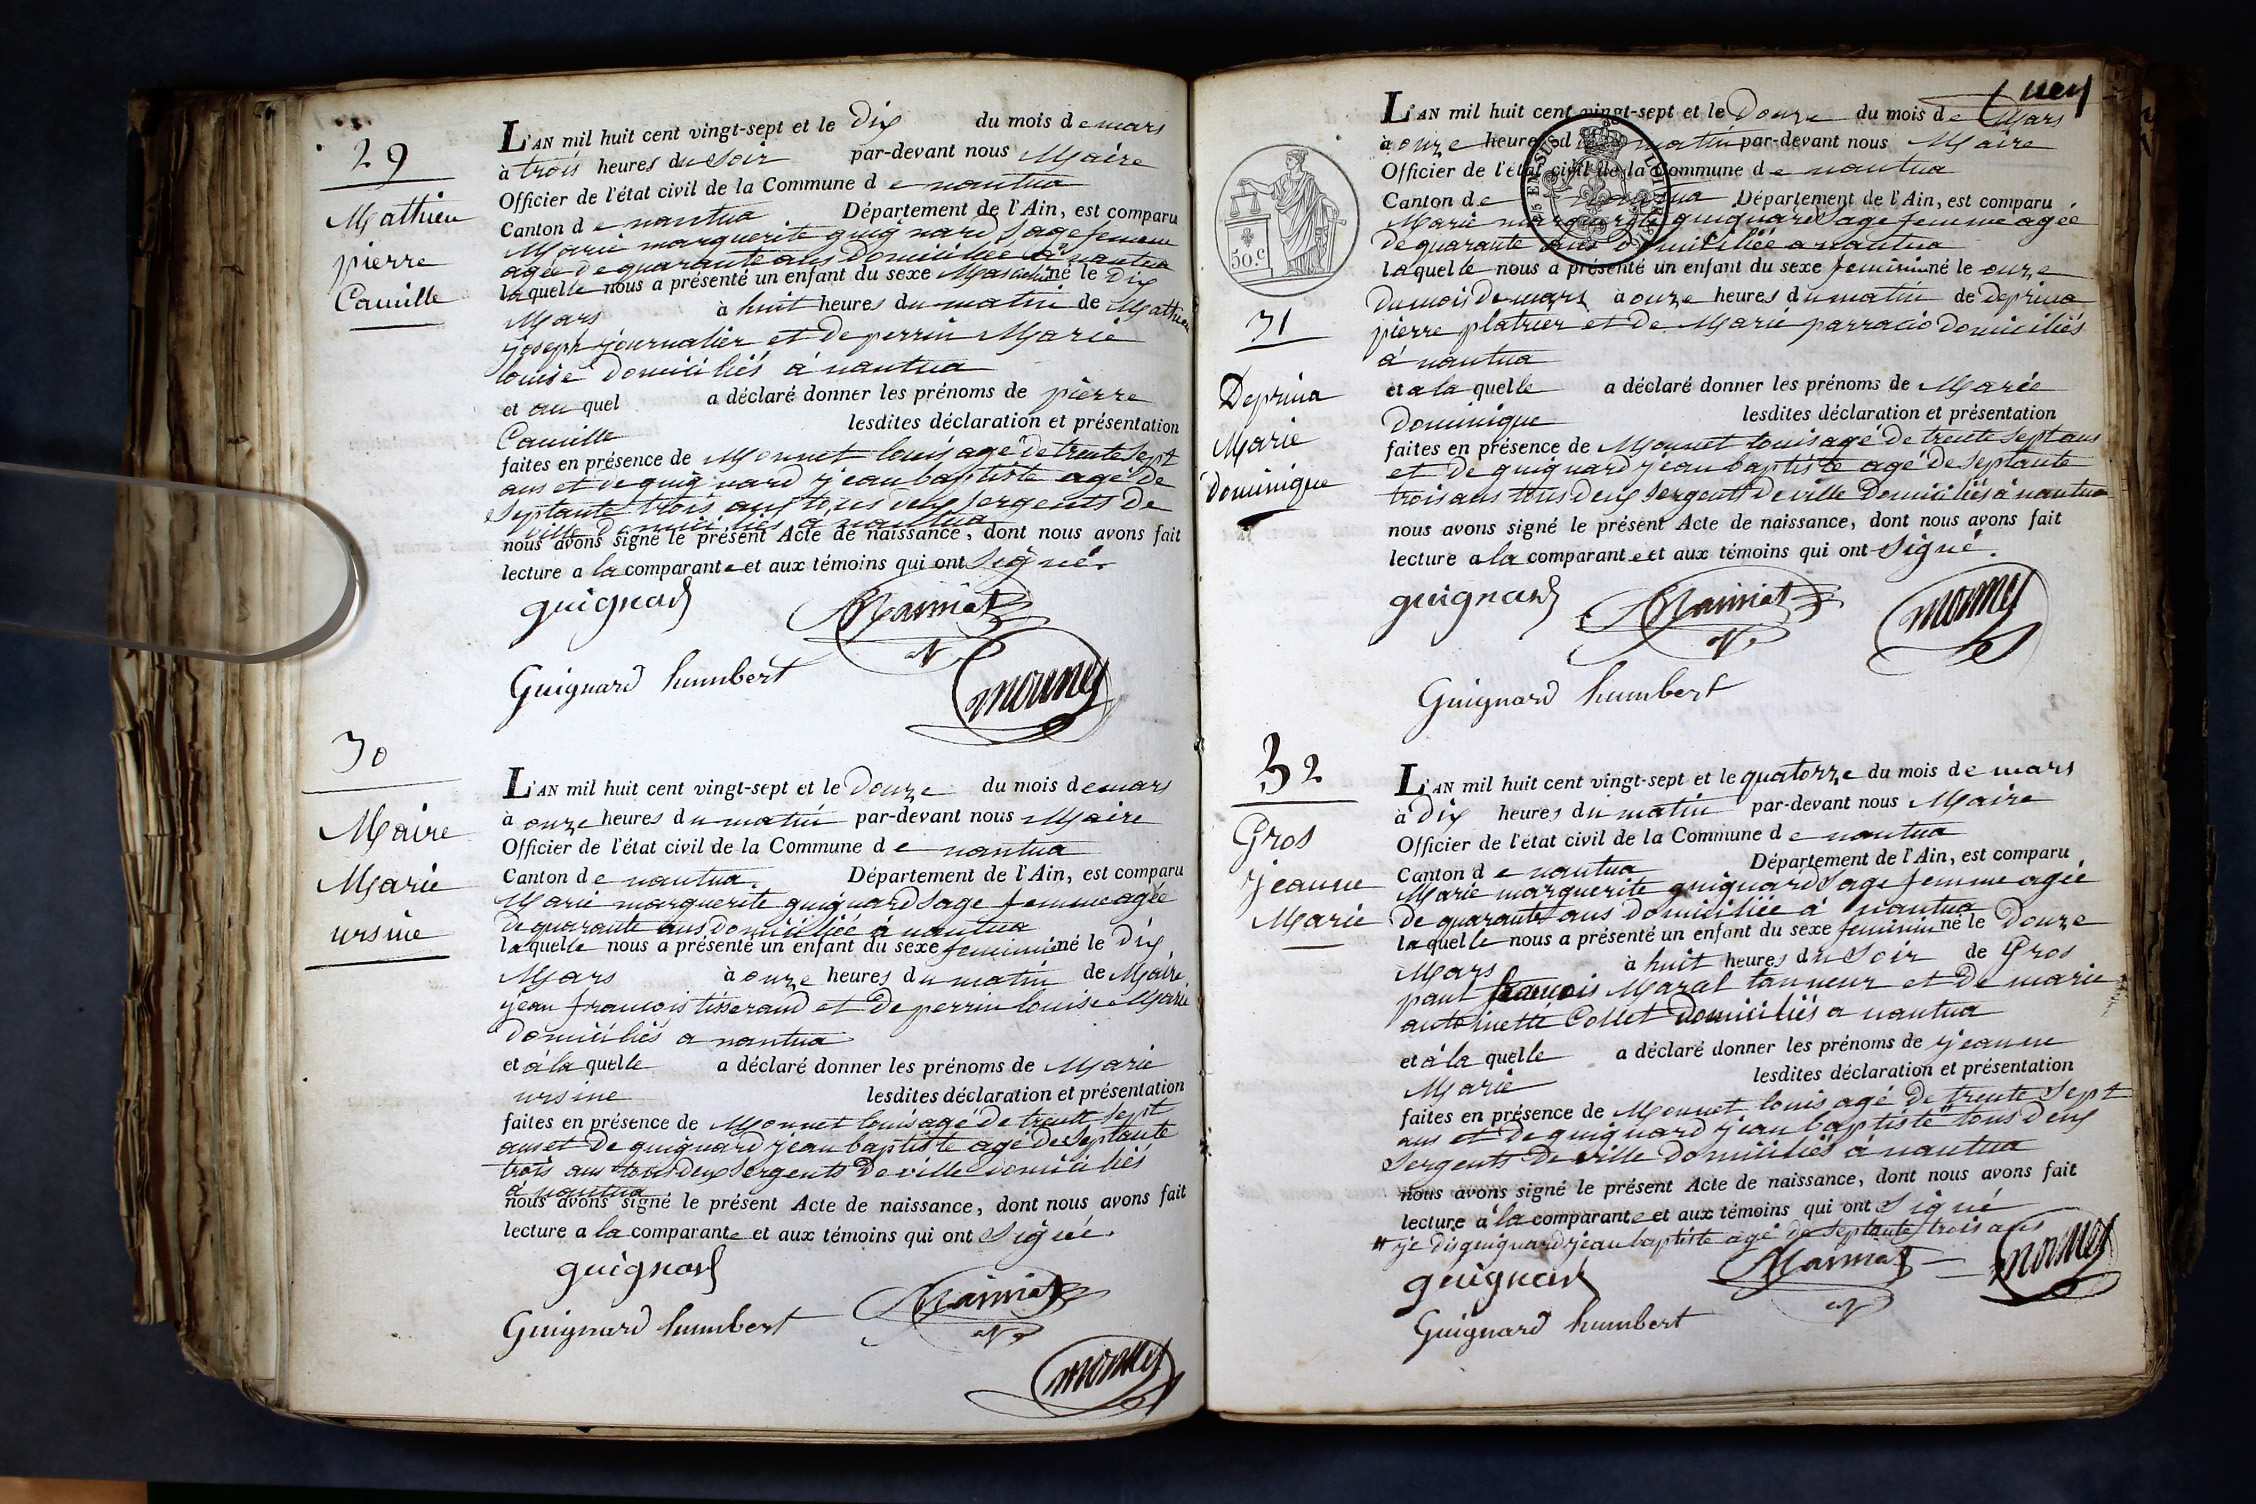 29
Mathieu
pierre
Camille
L'AN mil huit cent vingt-sept et le Dix du mois de mars
à trois heures du Soir par-devant nous Maire
Officier de l'état civil de la Commune de nantua
Canton de nantua Département de l'Ain, est comparu
Marie marguerite guignard Sage femme
agée de quarante ans Domiciliée à nantua
laquelle nous a présenté un enfant du sexe Masculin né le Dix
Mars à huit heures du matin de Mathieu
joseph journalier et de perrin Marie
louise Domiciliés à nantua
et au quel a déclaré donner les prénoms de pierre
Camille lesdites déclaration et présentation
faites en présence de Monnet louis agé de trente Sept
ans et de guignard jean baptiste agé de
Septante trois ans tous deux Sergents De
ville Domiciliés à nantua
nous avons signé le présent Acte de naissance, dont nous avons fait
lecture a la comparante et aux témoins qui ont Signé.
guignard
Guignard humbert
30
Maire
Marie
ursine
L'AN mil huit cent vingt-sept et le Douze du mois de mars
à onze heures du matin par-devant nous Maire
Officier de l'état civil de la Commune de nantua
Canton de nantua. Département de l'Ain, est comparu
Marie marguerite guignard Sage femme agée
de quarante ans Domiciliée à nantua
laquelle nous a présenté un enfant du sexe feminin né le dix
Mars à onze heures du matin de Maire
jean françois tisserand et De perrin louise Marie
Domiciliés a nantua
et à la quelle a déclaré donner les prénoms de Marie
ursine lesdites déclaration et présentation
faites en présence de Monnet louis agé De trente Sept
ans et De guignard jean baptiste agé De Septante
trois ans tous deux Sergents De ville Domiciliés
à nantua
nous avons signé le présent Acte de naissance, dont nous avons fait
lecture a la comparante et aux témoins qui ont Signé.
guignard
Guignard humbert
L'AN mil huit cent vingt-sept et le Douze du mois de Mars
à onze heures du matin par-devant nous Maire
Officier de l'état civil de la Commune de nantua
Canton de nantua Département de l'Ain, est comparu
Marie marguerite guignard Sage femme agée
De quarante ans Domiciliée a nantua
laquelle nous a présenté un enfant du sexe feminin né le onze
Du mois De mars à onze heures du matin de Deprina
pierre platrier et De Marie parracio domiciliés
à nantua
et a la quelle a déclaré donner les prénoms de Marie
Dominique lesdites déclaration et présentation
faites en présence de Monnet louis agé De trente Sept ans
et De guignard jean baptiste agé De Septante
trois ans tous Deux Sergents De ville Domiciliés à nantua
nous avons signé le présent Acte de naissance, dont nous avons fait
lecture a la comparante et aux témoins qui ont Signé.
50.C
31
Deprina
Marie
Dominique
guignard
Guignard humbert
32
Gros
jeanne
Marie
L'AN mil huit cent vingt-sept et le quatorze du mois de mars
à Dix heures du matin par-devant nous Maire
Officier de l'état civil de la Commune de nantua
Canton de nantua Département de l'Ain, est comparu
Marie marguerite guignard Sage femme agée
De quarante ans Domiciliée à nantua
laquelle nous a présenté un enfant du sexe feminin né le Douze
Mars à huit heures du Soir de Gros
paul françois Maral tanneur et De marie
antoinette Collet Domiciliés a nantua
et à la quelle a déclaré donner les prénoms de jeanne
Marie lesdites déclaration et présentation
faites en présence de Monnet louis agé De trente Sept
ans et De guignard jean baptiste tous Deux
Sergents De ville Domiciliés à nantua
nous avons signé le présent Acte de naissance, dont nous avons fait
lecture à la comparante et aux témoins qui ont Signé
je dis guignard jean baptiste agé de Septante trois ans
guignard
Guignard humbert